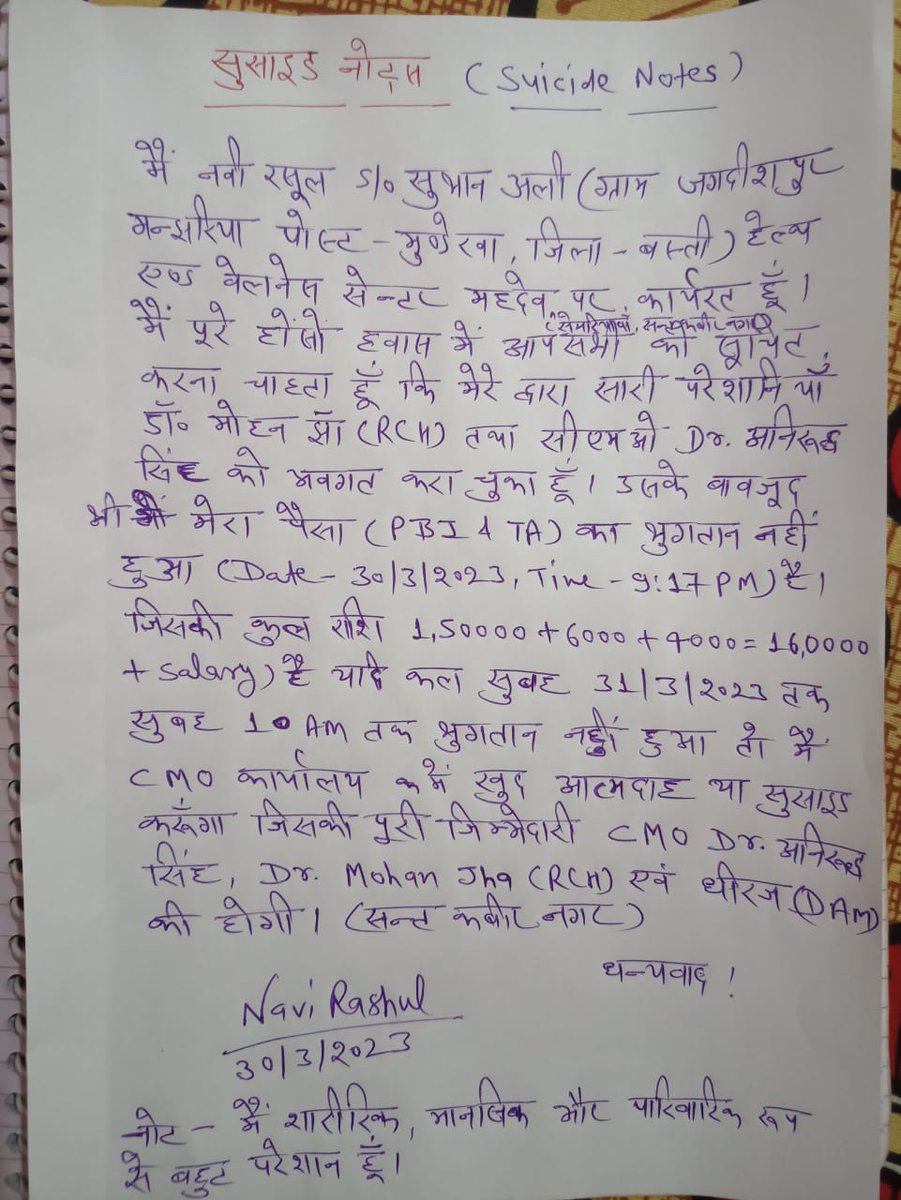 सुसाइड नोट्स (Suicide Notes)
मैं नवी रसूल S/o सुभान अली (ग्राम जगदीशपुर
मन्झरिया पोस्ट - मुण्डेरवा, जिला - बस्ती) हेल्थ
एण्ड वेलनेस सेन्टर महदेवा पर कार्यरत हूँ।
(सेमरियावाँ, सन्तकबीर नगर)
मैं पूरे होशो हवास में आप सभी को सूचित
करना चाहता हूँ कि मेरे द्वारा सारी परेशानियाँ
डॉ० मोहन झा (RCH) तथा सीएमओ Dr. अनिरूद्ध
सिंह को अवगत करा चुका हूँ। उसके बावजूद
भी मेरा पैसा (PBI & TA) का भुगतान नहीं
हुआ (Date - 30/3/2023, Time - 9:17 PM) है।
जिसकी कुल राशि 1,50000 + 6000 + 4000 = 16,0000
+ Salary) है यदि कल सुबह 31/3/2023 तक
सुबह 10 AM तक भुगतान नहीं हुआ तो मैं
CMO कार्यालय में खुद आत्मदाह या सुसाइड
करूँगा जिसकी पुरी जिम्मेदारी CMO Dr. अनिरूद्ध
सिंह, Dr. Mohan Jha (RCH) एवं धीरज (DAM)
की होगी। (सन्त कबीर नगर)
धन्यवाद !
Navi Rashul
30/3/2023
नोट - मैं शारीरिक, मानसिक और पारिवारिक रूप
से बहुत परेशान हूँ।